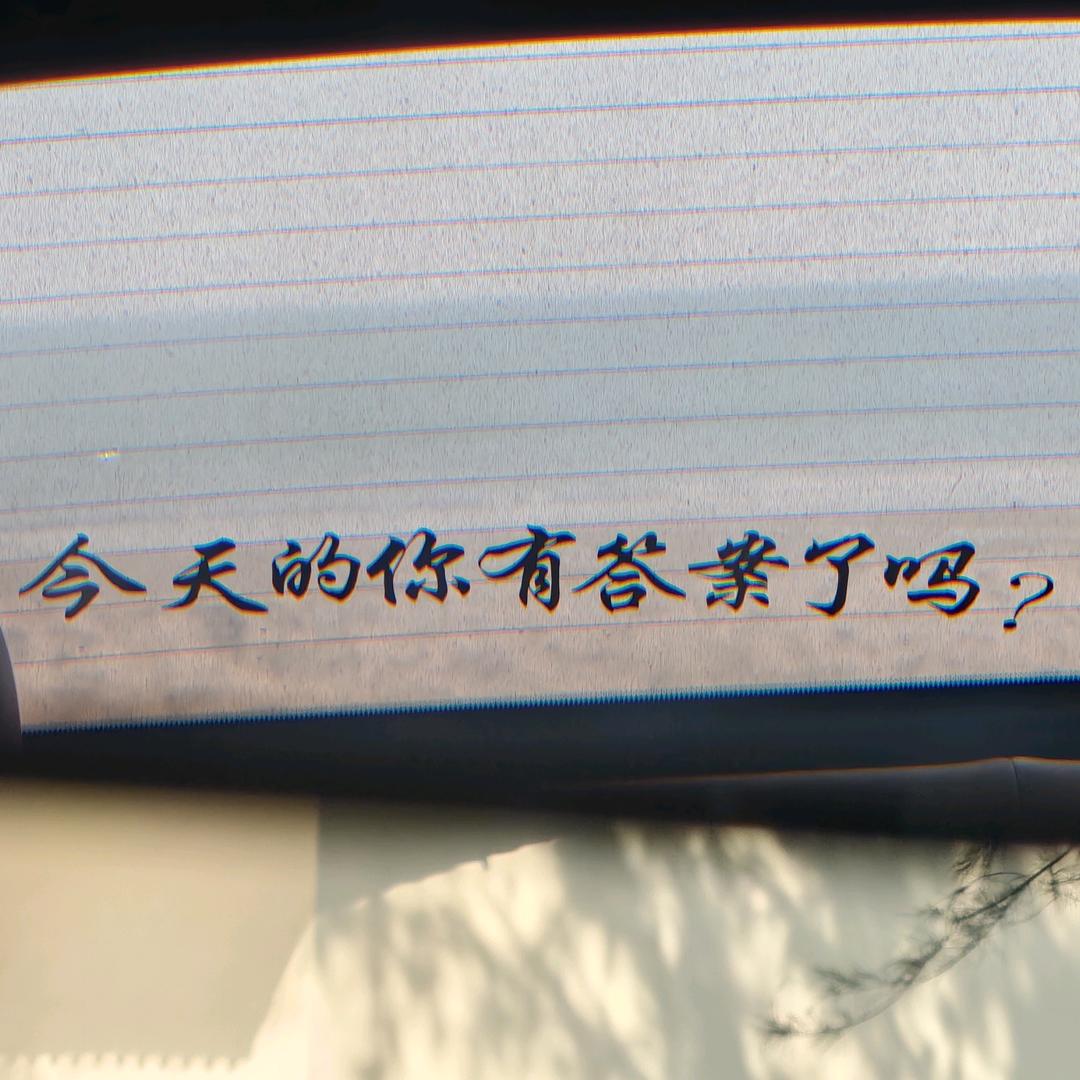 今天的你有答案了吗?